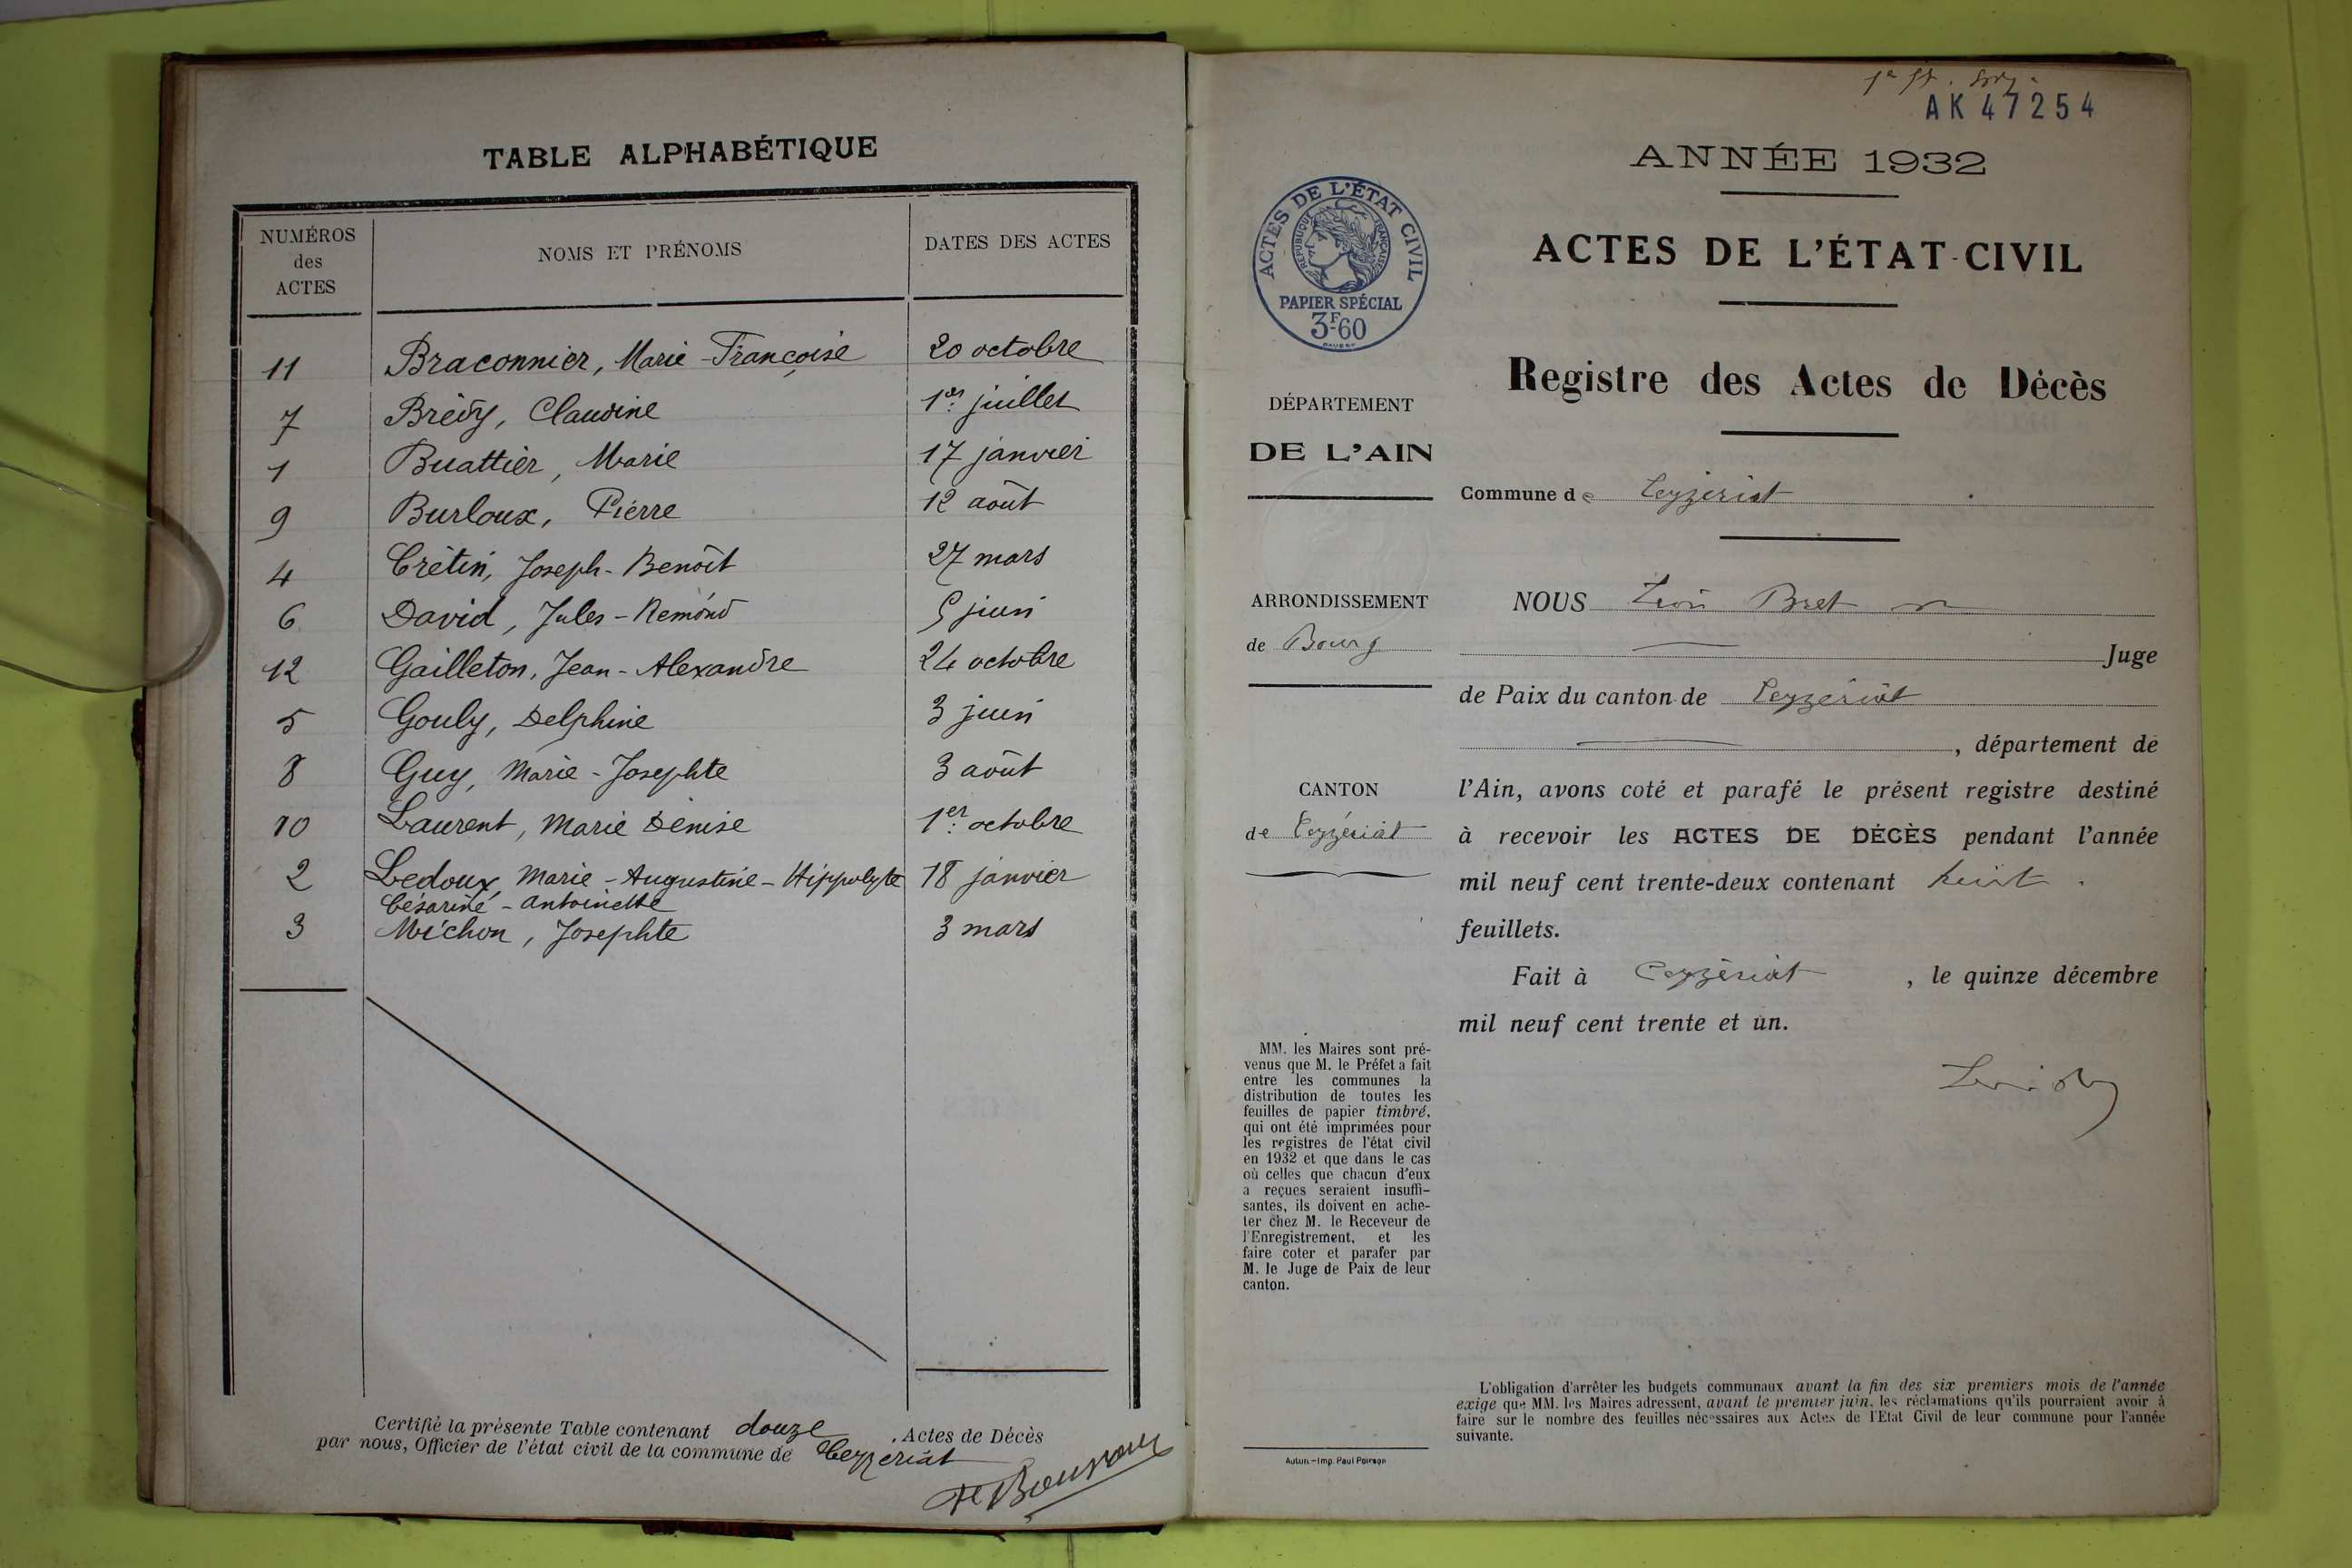 TABLE ALPHABÉTIQUE
NUMÉROS des ACTES
NOMS ET PRÉNOMS
DATES DES ACTES
11 Braconnier, Marie-Françoise 20 octobre
7 Brédy, Claudine 1er juillet
1 Buattier, Marie 17 janvier
9 Burloux, Pierre 12 août
4 Crétin, Joseph-Benoît 27 mars
6 David, Jules-Rémond 5 juin
12 Gailleton, Jean-Alexandre 24 octobre
5 Gouly, Delphine 3 juin
8 Guy, Marie-Josephte 3 août
10 Laurent, Marie Denise 1er octobre
2 Ledoux, Marie-Augustine-Hippolyte 18 janvier
Césarine-Antoinette
3 Michon, Josephte 3 mars
Certifié la présente Table contenant douze Actes de Décès
par nous, Officier de l'état civil de la commune de Ceyzériat
AK 47254
ANNÉE 1932
ACTES DE L'ÉTAT CIVIL
RÉPUBLIQUE FRANÇAISE
PAPIER SPÉCIAL
3F60
ACTES DE L'ÉTAT-CIVIL
Registre des Actes de Décès
DÉPARTEMENT
DE L'AIN
Commune de Ceyzériat
ARRONDISSEMENT
de Bourg
CANTON
de Ceyzériat
NOUS Léon Bret
Juge
de Paix du canton de Ceyzériat
, département de
l'Ain, avons coté et parafé le présent registre destiné
à recevoir les ACTES DE DÉCÈS pendant l'année
mil neuf cent trente-deux contenant huit
feuillets.
Fait à Ceyzériat, le quinze décembre
mil neuf cent trente et un.
MM. les Maires sont pré-
venus que M. le Préfet a fait
entre les communes la
distribution de toutes les
feuilles de papier timbré,
qui ont été imprimées pour
les registres de l'état civil
en 1932 et que dans le cas
où celles que chacun d'eux
a reçues seraient insuffi-
santes, ils doivent en ache-
ter chez M. le Receveur de
l'Enregistrement, et les
faire coter et parafer par
M. le Juge de Paix de leur
canton.
Autun.-Imp. Paul Poirson
L'obligation d'arrêter les budgets communaux avant la fin des six premiers mois de l'année
exige que MM. les Maires adressent, avant le premier juin, les réclamations qu'ils pourraient avoir à
faire sur le nombre des feuilles nécessaires aux Actes de l'Etat Civil de leur commune pour l'année
suivante.